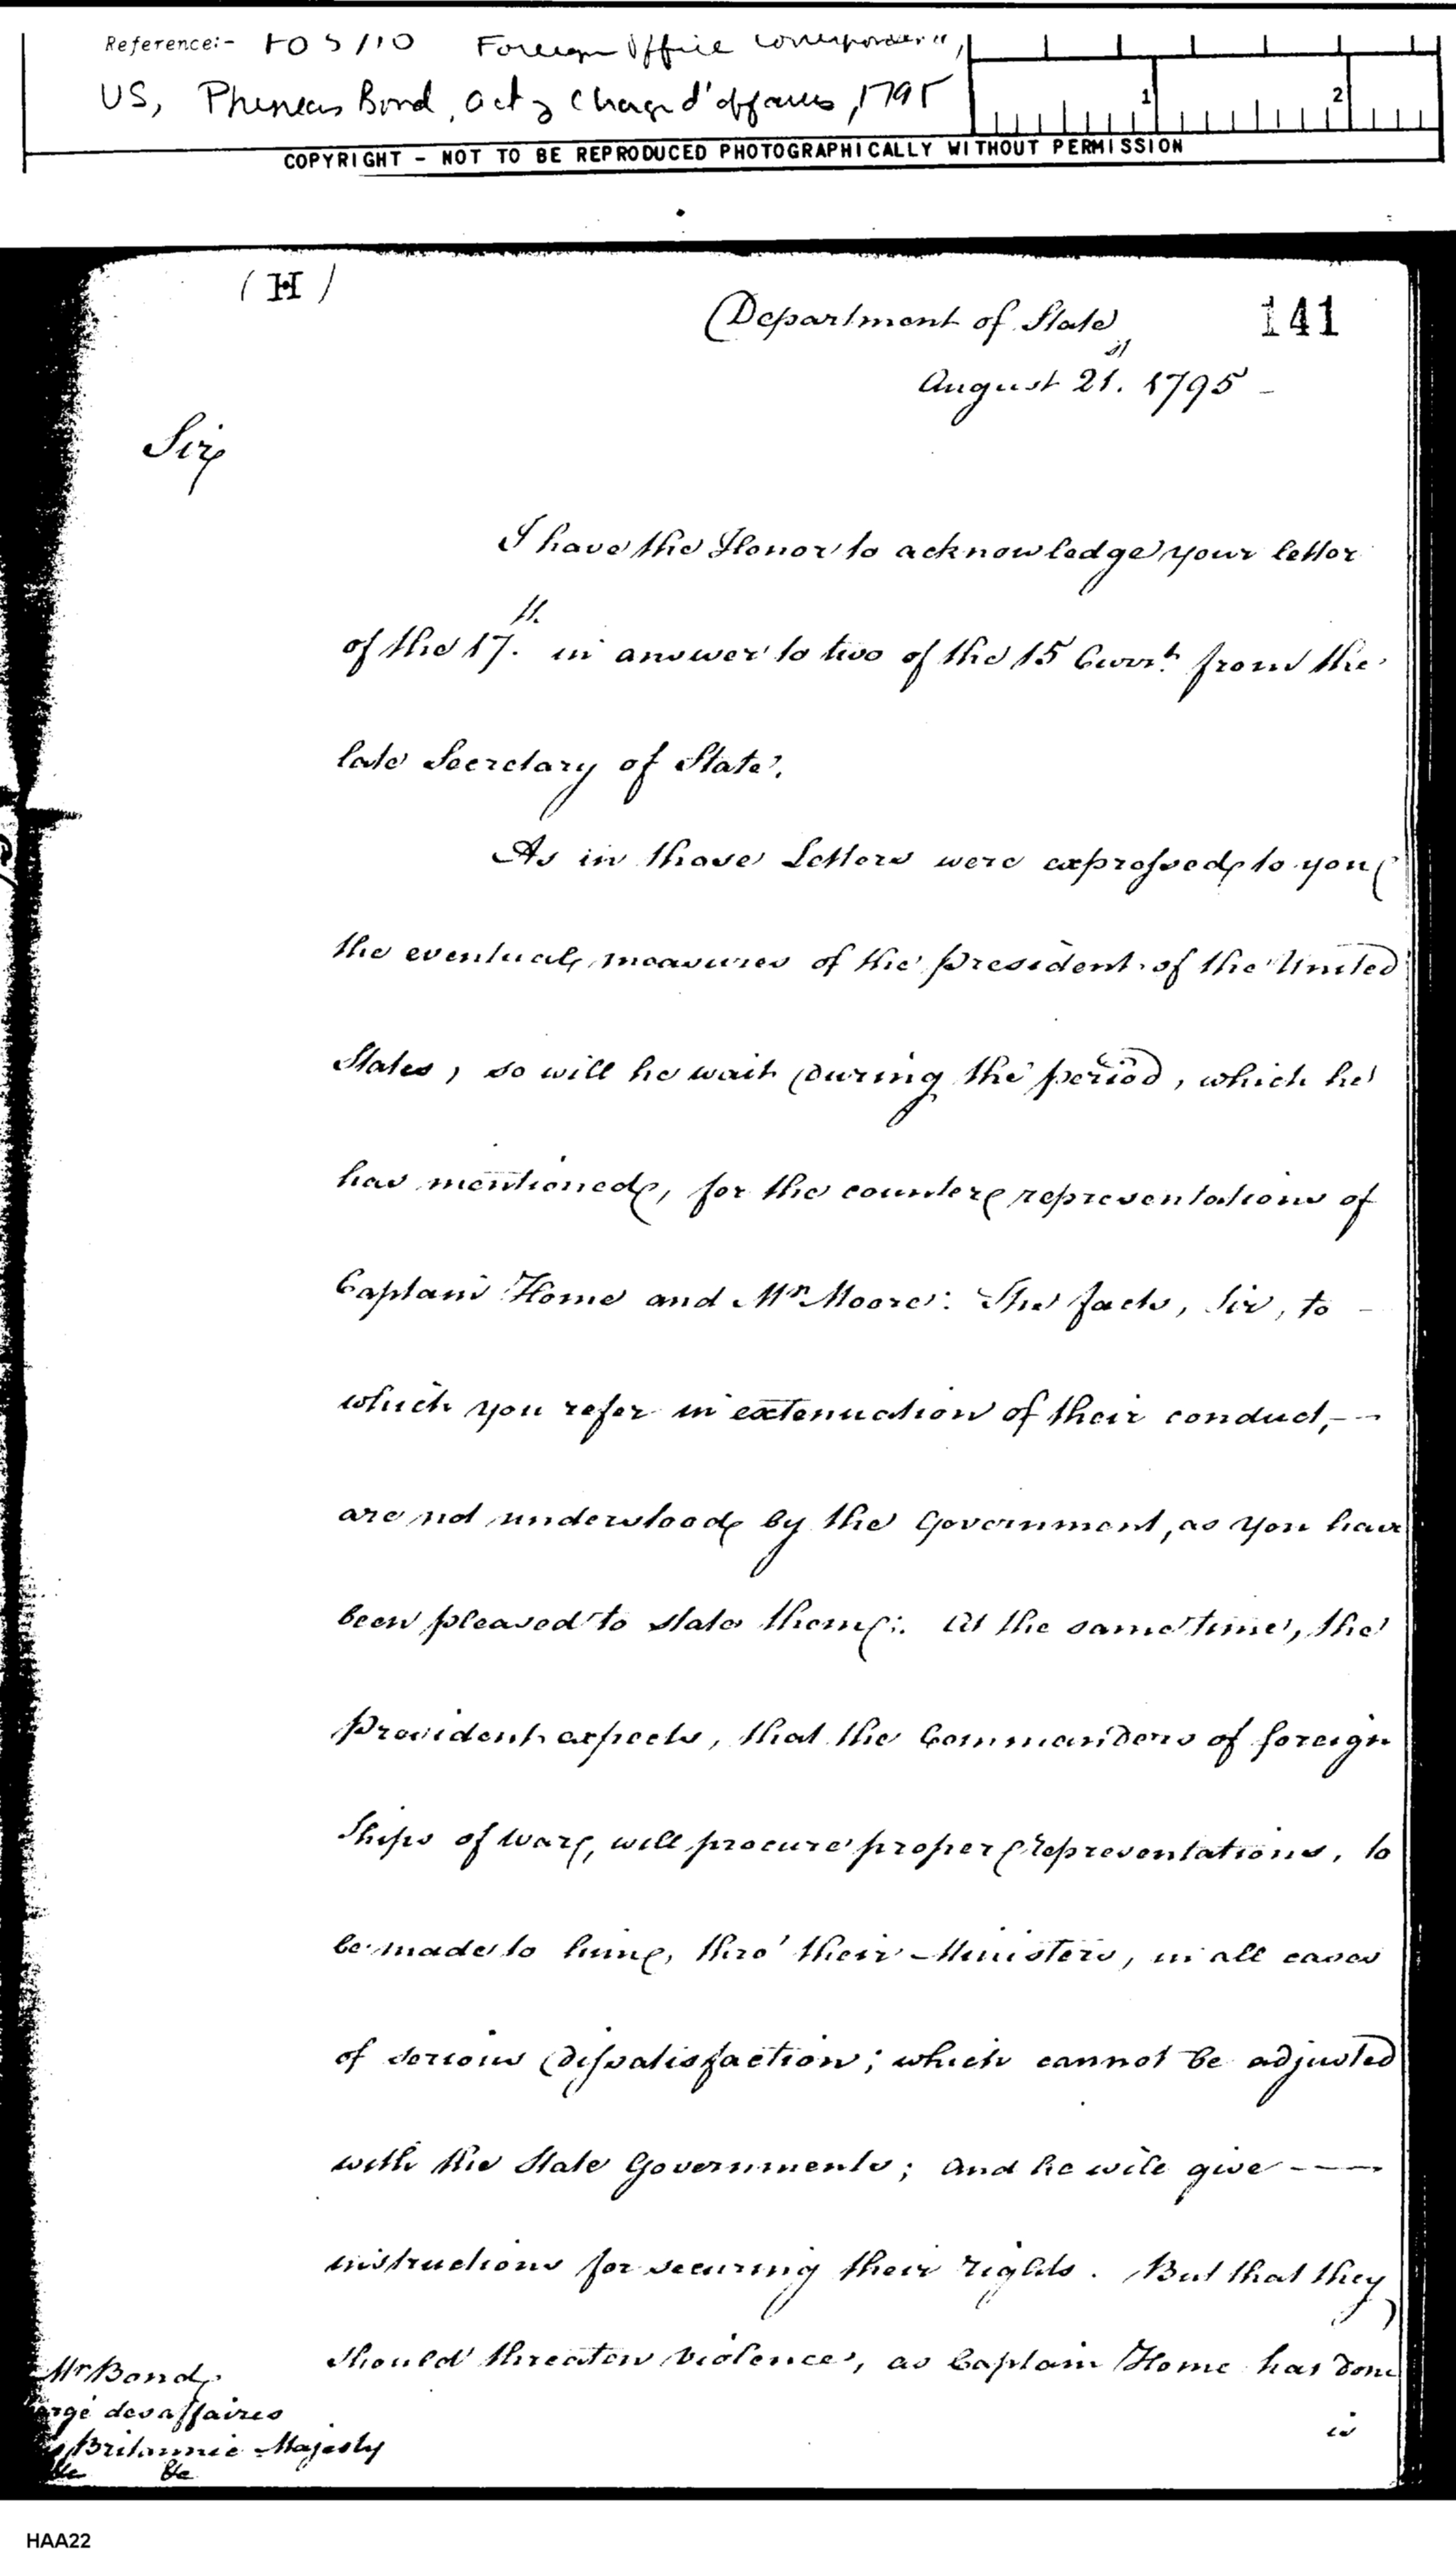 Reference:- FO 5/10 Foreign Office Correspondence,
US, Phineas Bond, actg Chargé d'affaires, 1795
1 2
COPYRIGHT - NOT TO BE REPRODUCED PHOTOGRAPHICALLY WITHOUT PERMISSION
(H)
Department of State 141
August 21.st 1795 -
Sir
I have the Honor to acknowledge your letter
of the 17.th in answer to two of the 15 Curr.t from the
late Secretary of State.
As in those Letters were expressed to you
the eventual measures of the President of the United
States, so will he wait during the period, which he
has mentioned, for the counter representations of
Captain Home and Mr. Moore: The facts, Sir, to -
which you refer in extenuation of their conduct, --
are not understood by the Government, as you have
been pleased to state them: At the same time, the
President expects, that the Commanders of foreign
Ships of war, will procure proper representations, to
be made to him, thro' their Ministers, in all cases
of serious dissatisfaction; which cannot be adjusted
with the State Governments; and he will give ----
instructions for securing their rights. But that they
should threaten violence, as Captain Home has done
is
Mr Bond
argé des affaires
s Britannic Majesty
&c &c
HAA22